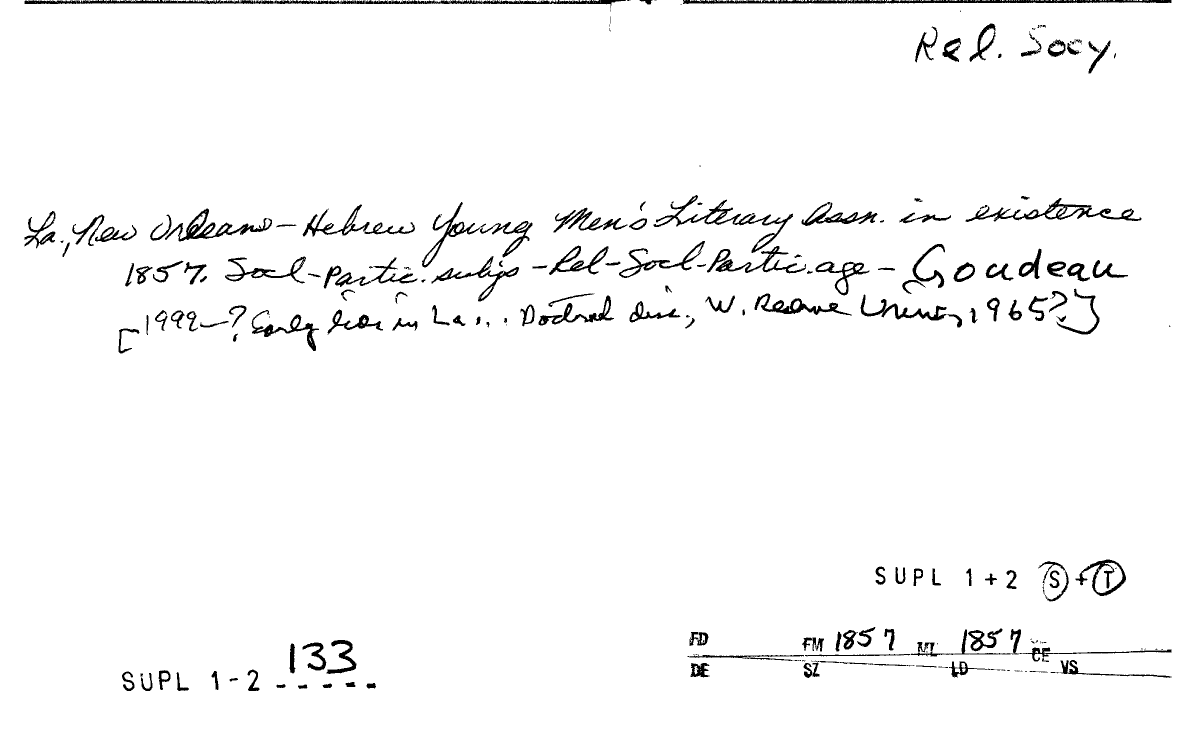 Rel. Socy.
La., New Orleans - Hebrew Young Men's Literary Assn. in existence
1857. Socl-Partic. subjs - Rel-Socl-Partic. age - Goudeau
[1999-? Early libs in La... Doctoral diss., W. Reserve Univ., 1965?]
SUPL 1+2 S+T
FD FM 1857 ML 1857 CE
DE SZ LD VS
SUPL 1-2 133